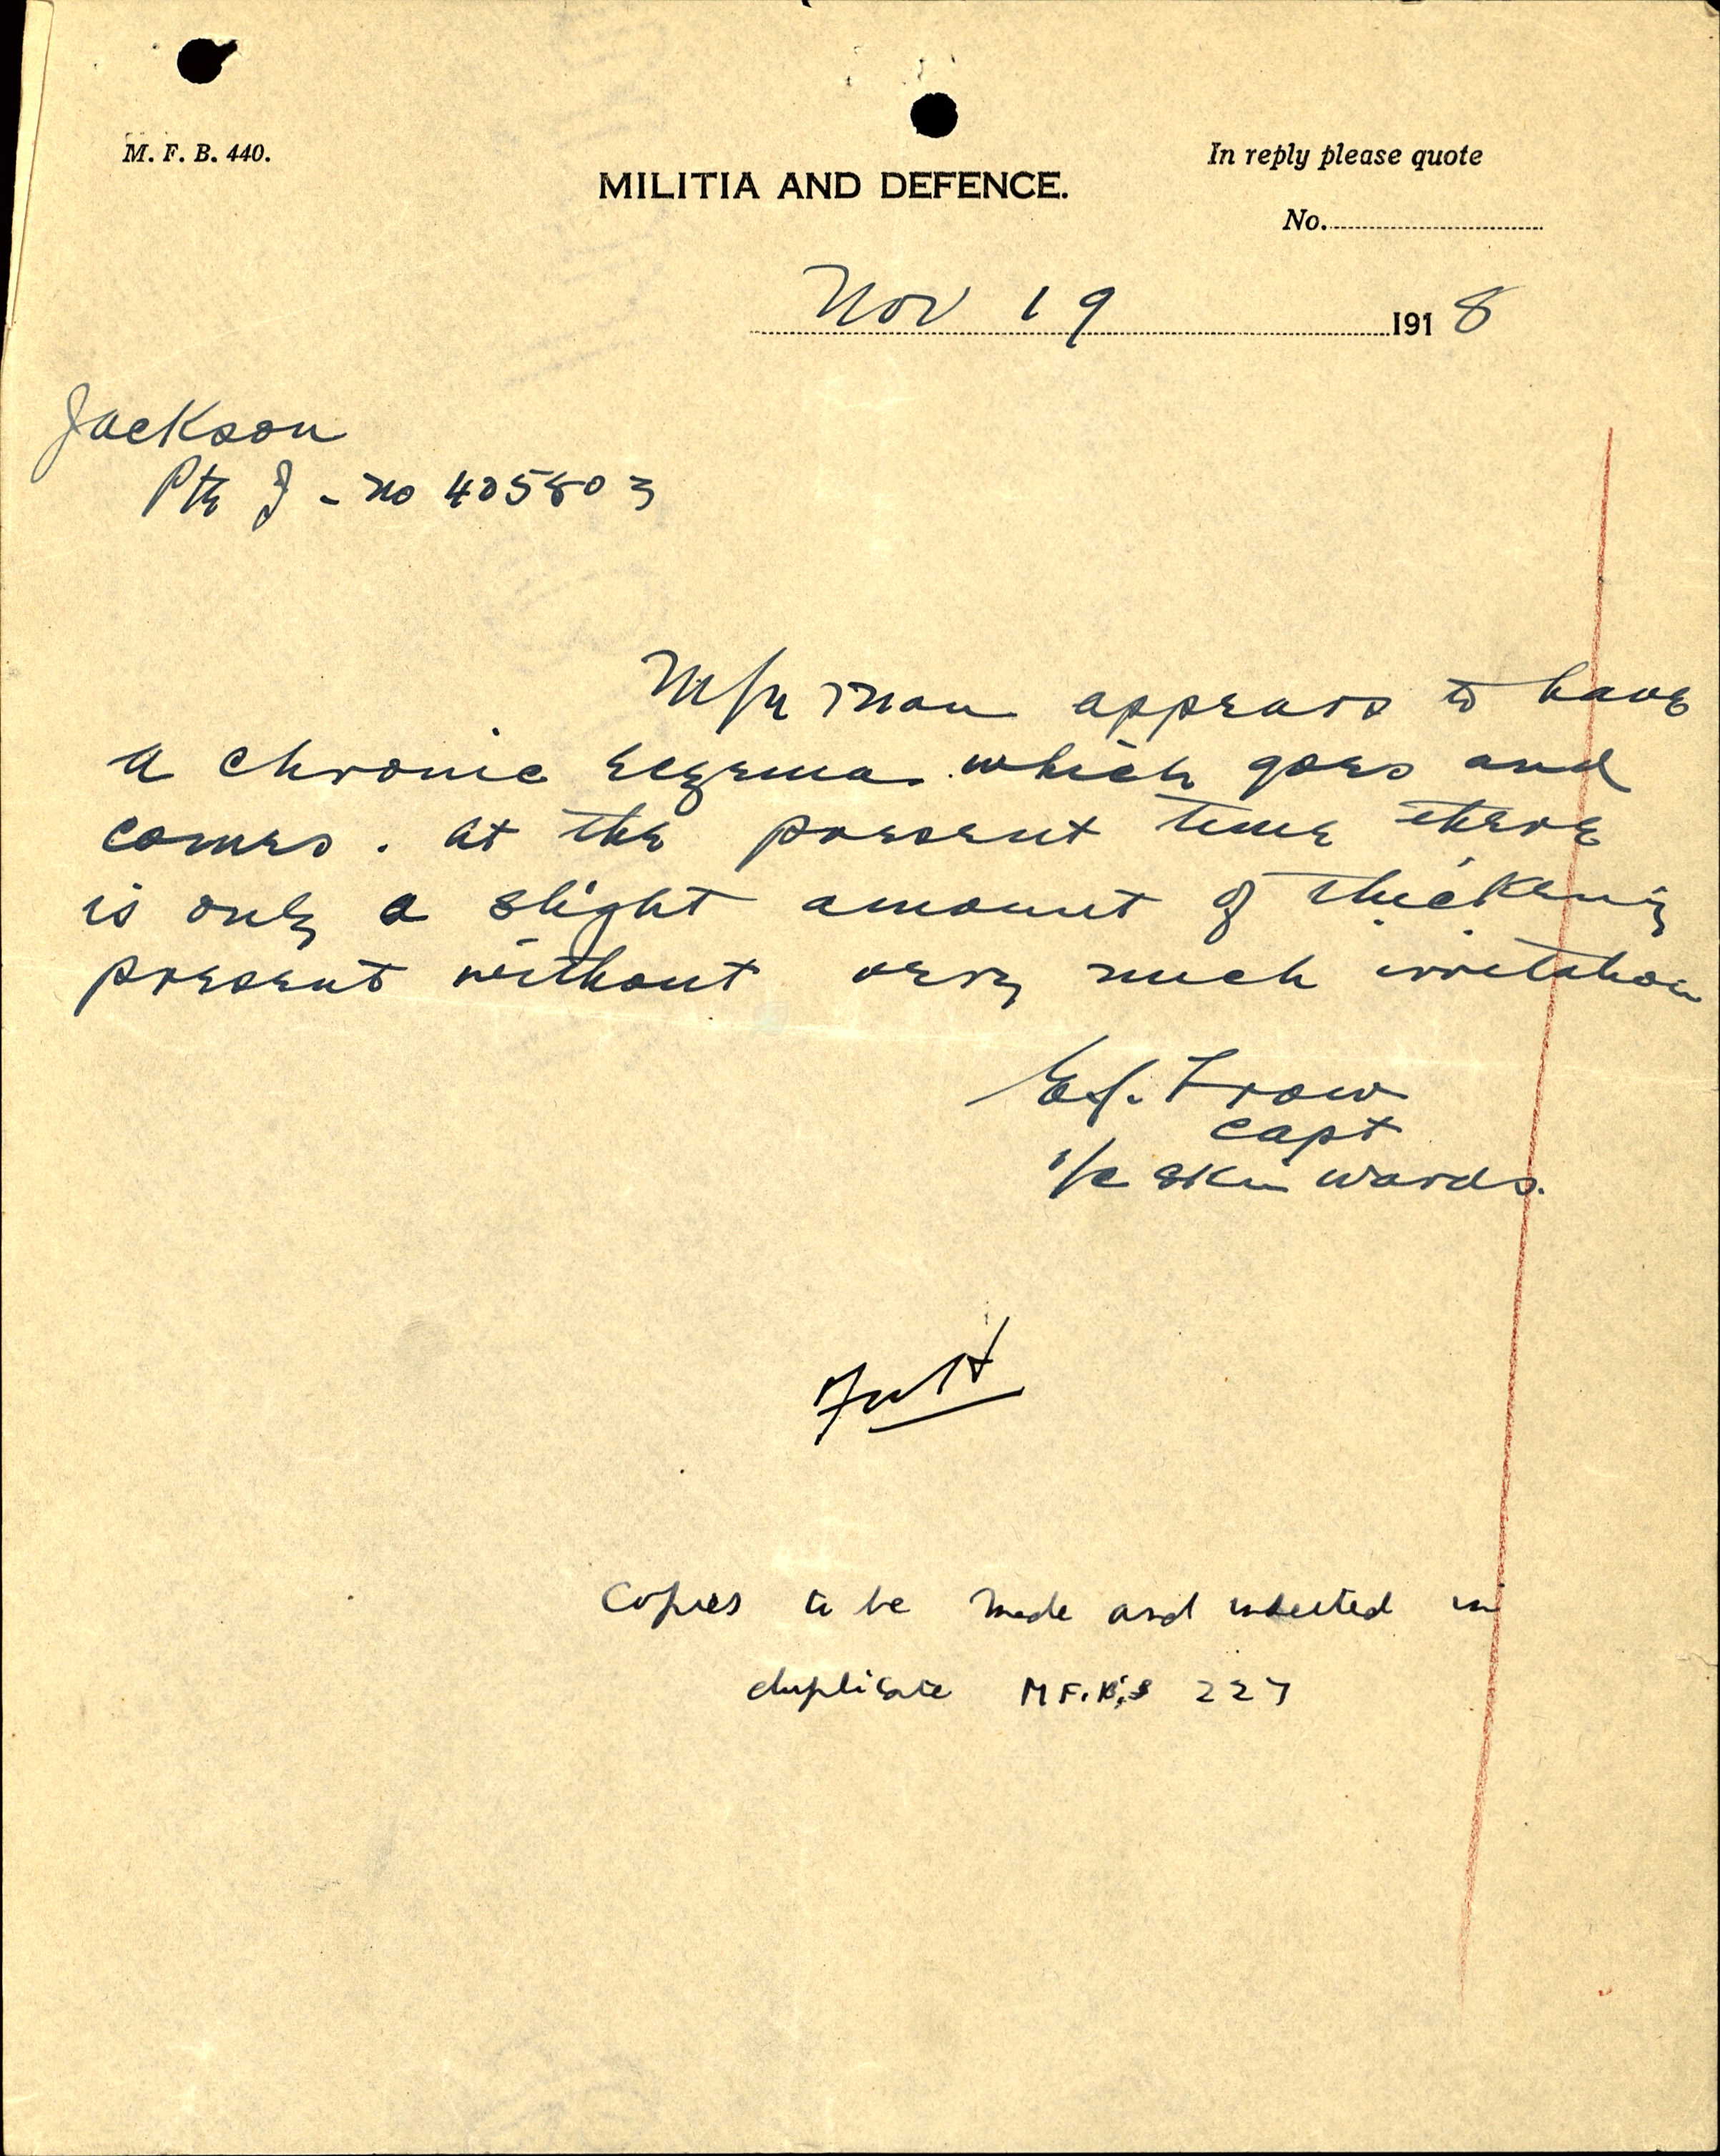 M. F. B. 440.
In reply please quote
MILITIA AND DEFENCE.
No.
Nov 19 1918
Jackson
Pte J - no 405803
M/n man appears to have
a chronic eczema which goes and
comes. At the present time there
is only a slight amount of thickening
present without very much irritation
Trow
Capt
i/c Skin wards.
Copies to be made and inserted in
duplicate M.F.B's 227